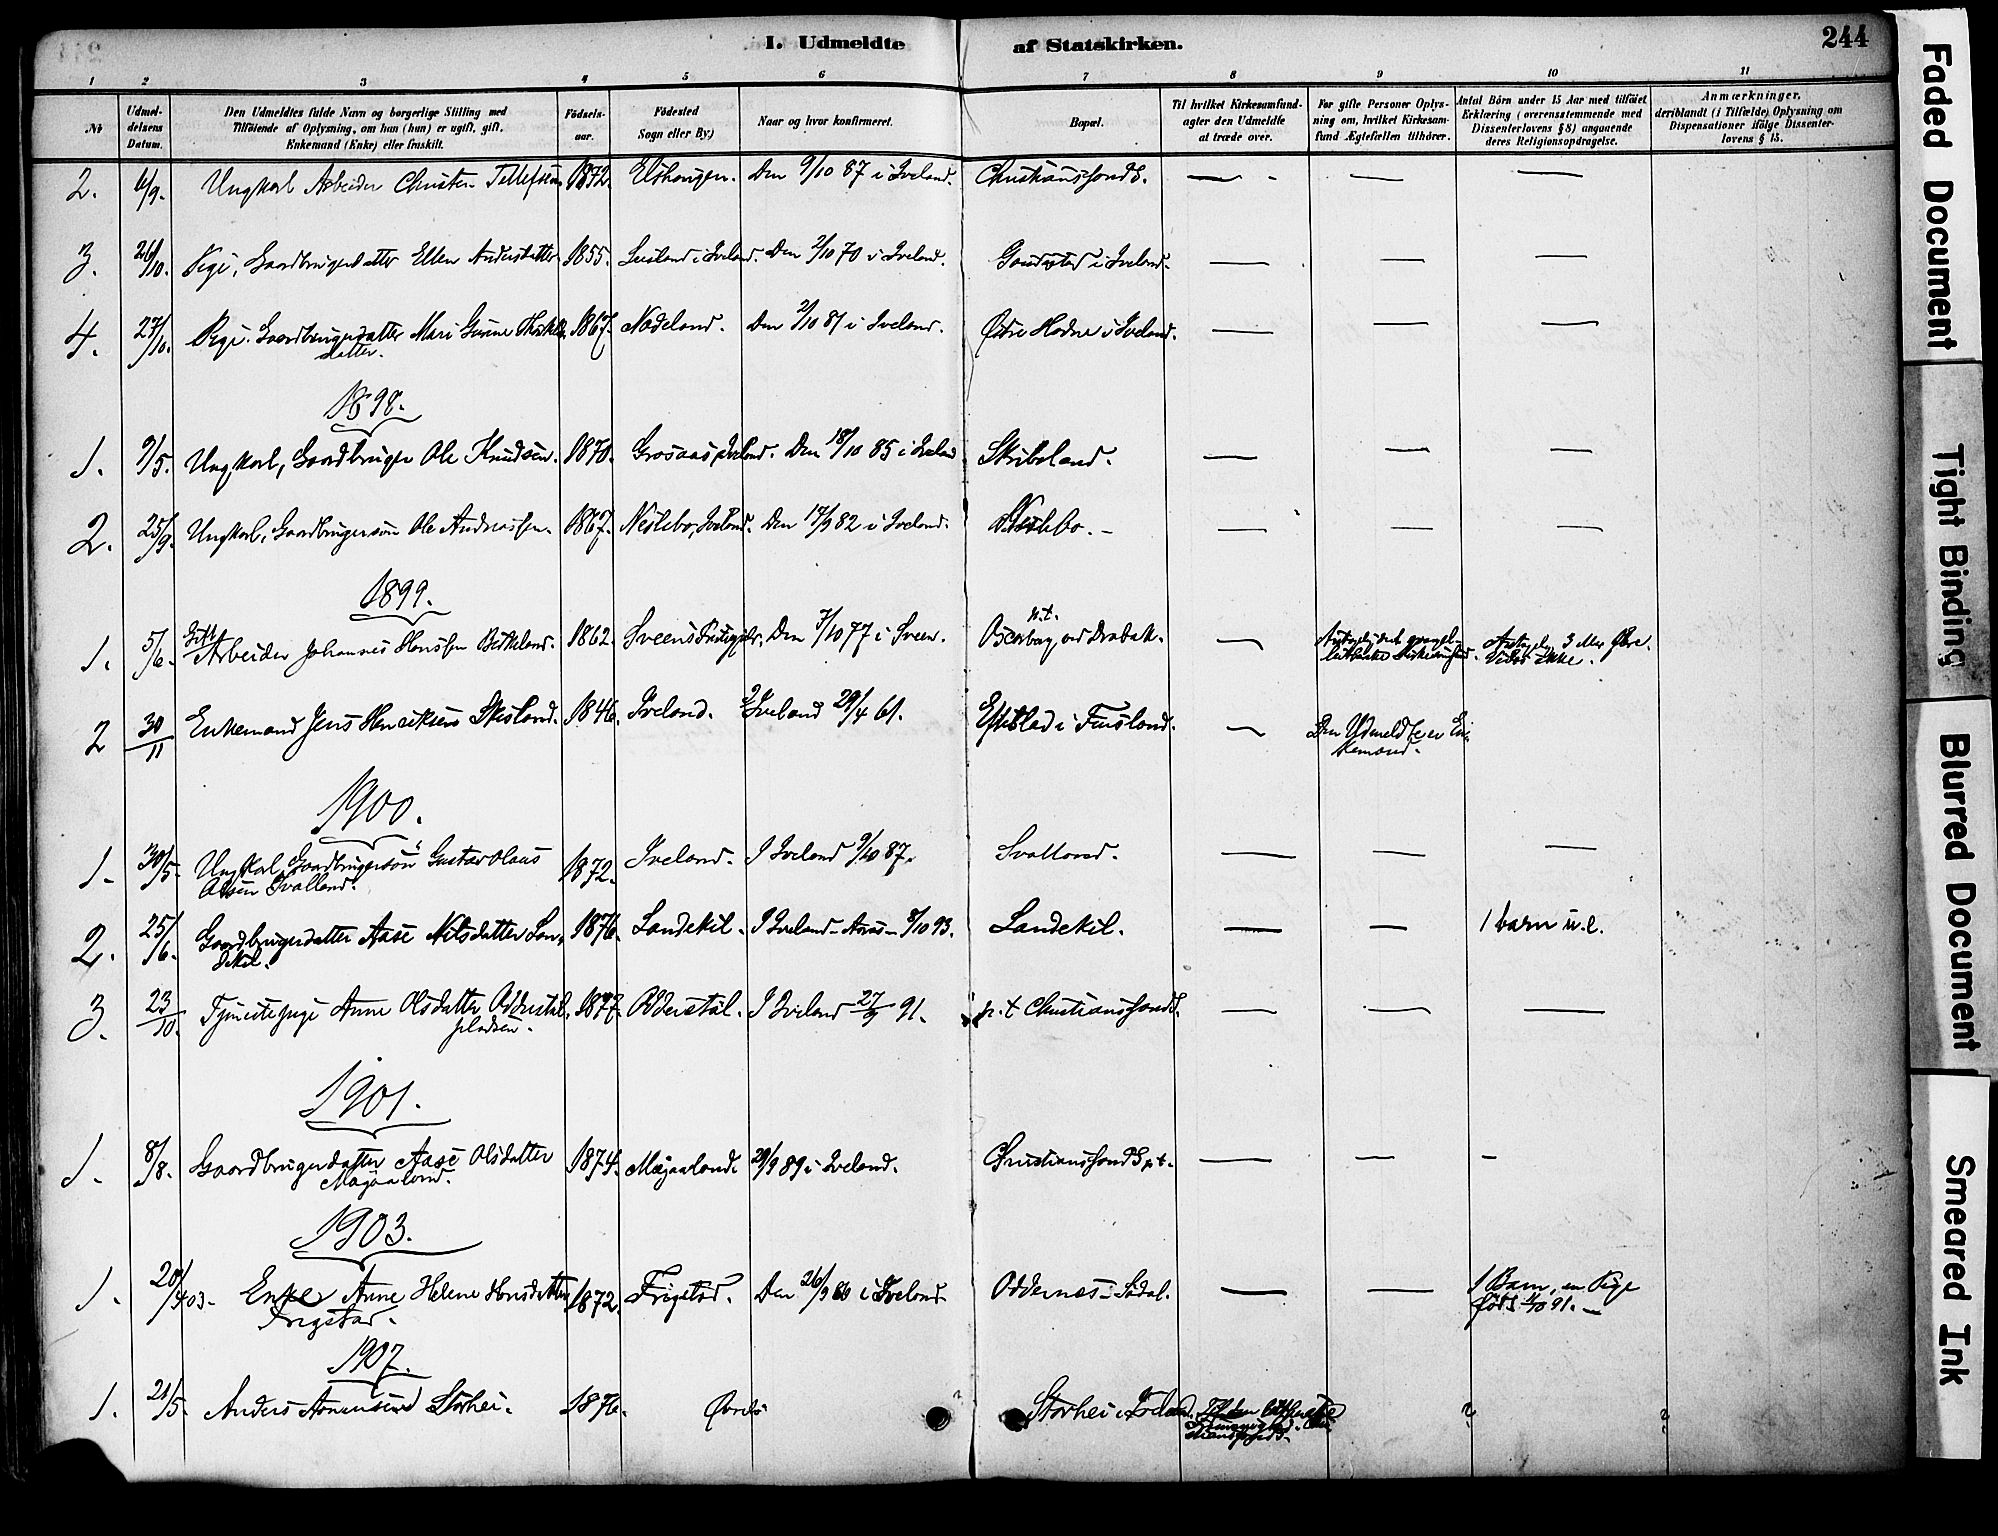 I. Udmeldte af Statskirken. 244
1 2 3 4 5 6 7 8 9 10 11
No Udmeldelsens Datum. Den Udmeldtes fulde Navn og borgerlige Stilling med Tilføiende af Oplysning, om han (hun) er ugift, gift, Enkemand (Enke) eller fraskilt. Fødselsaar. Fødested Sogn eller By) Naar og hvor konfirmeret. Bopæl. Til hvilket Kirkesamfund agter den Udmeldte at træde over. For gifte Personer Oplysning om, hvilket Kirkesamfund Ægtefællen tilhører. Antal Børn under 15 Aar med tilføiet Erklæring (overensstemmende med Dissenterlovens § 8) angaaende deres Religionsopdragelse. Anmærkninger, deriblandt (i Tilfælde) Oplysning om Dispensationer ifølge Dissenterlovens § 15.
2. 6/9. Ungkarl Arbeider Christen Tellefsen 1872. Den 9/10 87 i Iveland. Christianssands. — — —
3. 26/10. Pige, Gaardbrugerdatter Ellen Andersdatter 1855. i Iveland. Den 2/10 70 i Iveland. i Iveland. — — —
4. 27/10. Pige. Gaardbrugerdatter Mari Gurine 1867. Nodeland. Den 2/10 81 i Iveland. Østre Hodne i Iveland. — — —
datter.
1898.
1. 9/5. Ungkarl, Gaardbruger Ole Knudsen. 1870. Grosaas, Iveland. Den 18/10 85 i Iveland Skribeland. — — —
2. 25/9. Ungkarl, Gaardbrugersøn Ole Andreassen. 1867. Neslebo, Iveland. Den 17/9 82 i Iveland. Neslebo. — — — —
1899.
1. 5/6. Gift Arbeider Johannes Hanssen Birkeland. 1862. Sveens Den 7/10 77 i Sveen. p.t. Oscarsborg ved Drøbak. — 3 ikke.
2 30/11 Enkemand Jens Henriksen Skisland. 1846. Iveland. I Iveland 29/4 61. Eftestad i Finsland. — Den Udmeldte er Enkemand.
1900.
1. 30/5. Ungkarl, Gaardbrugersøn Gustav Olaus 1872. Iveland. I Iveland 9/10 87. Svalland. — — —
Olsen Svalland.
2. 25/6. Gaardbrugerdatter Aase Nilsdatter Lan- 1876. Landekil. I Iveland - Aass - 8/10 93. Landekil. — — 1 barn u.e.
dekil.
3. 23/10. Tjenestepige Anne Olsdatter Odderstøl, 1877. Odderstøl. I Iveland 27/9 91. p.t Christianssands. — — —
pladsen.
1901.
1. 8/8. Gaardbrugerdatter Aase Olsdatter 1874. Mejaaland. 29/9 89 i Iveland. Christianssands p.t. — — —
Mejaaland.
1903.
1. 20/4 03. Enke Anne Helene Hansdatter 1872. Frigstad. Den 26/9 i Iveland Oddernæs i Sødal. — — 1 Barn, en Pige
Frigstad. født 91. —
1907.
1. 21/5. Anders Aanensen Storhei. 1876. ? Storhei i Iveland. Til den lutherske ? ?
Faded Document
Tight Binding
Blurred Document
Smeared Ink